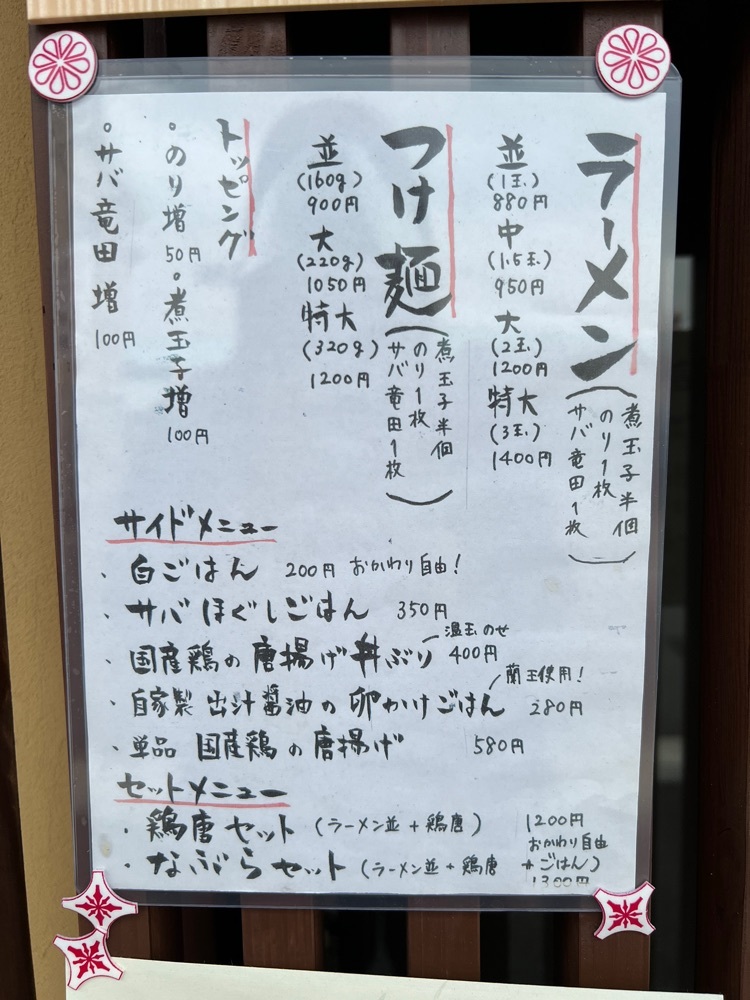 ラーメン
(煮玉子半個
のり1枚
サバ竜田1枚)
並
(1玉)
880円
中
(1.5玉)
950円
大
(2玉)
1200円
特大
(3玉)
1400円
つけ麺
(煮玉子半個
のり1枚
サバ竜田1枚)
並
(160g)
900円
大
(220g)
1050円
特大
(320g)
1200円
トッピング
。のり増 50円
。煮玉子増 100円
。サバ竜田増 100円
サイドメニュー
・白ごはん 200円 おかわり自由!
・サバほぐしごはん 350円
・国産鶏の唐揚げ丼ぶり 温玉のせ 400円
・自家製出汁醤油の卵かけごはん 蘭王使用! 280円
・単品 国産鶏の唐揚げ 580円
セットメニュー
・鶏唐セット (ラーメン並+鶏唐) 1200円
・なぶらセット (ラーメン並+鶏唐+ごはん) おかわり自由
1300円